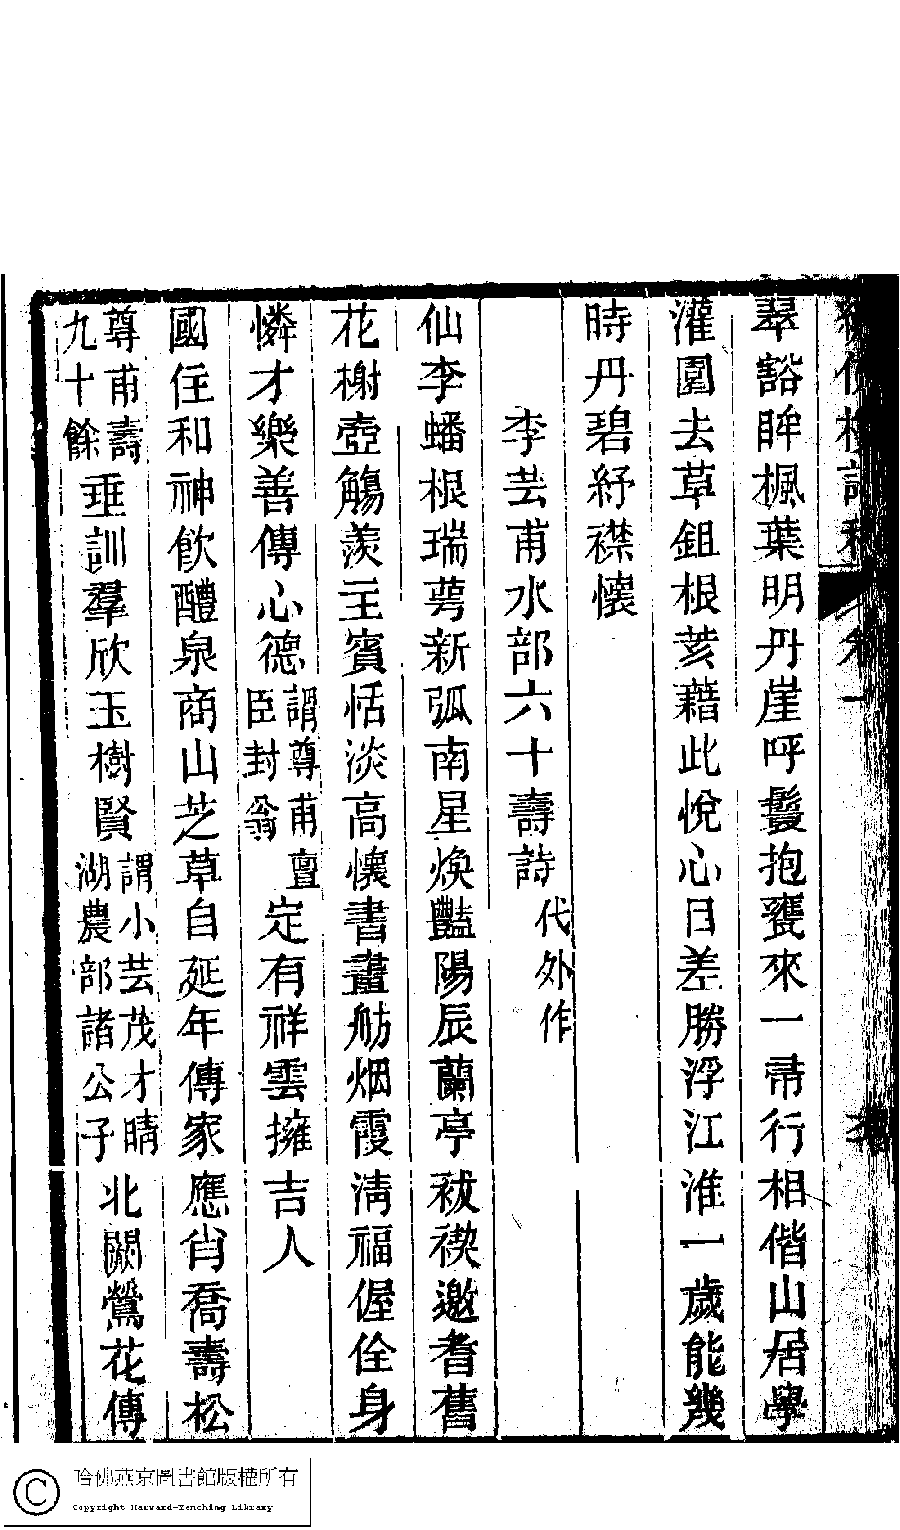 翠豁眸楓葉明丹崖呼鬟抱甕來一帚行相偕山居學
灌園去草鉏根荄藉此悅心目差勝浮江淮一歲能幾
時丹碧紓襟懷
李芸甫水部六十壽詩代外作
仙李蟠根瑞萼新弧南星煥豔陽辰蘭亭祓禊邀耆舊
花榭壺觴羨主賓恬淡高懷書畫舫烟霞清福偓佺身
憐才樂善傳心德謂尊甫亶臣封翁定有祥雲擁吉人
國住和神飲醴泉商山芝草自延年傳家應肖喬壽松
尊甫壽九十餘垂訓羣欣玉樹賢謂小芸茂才晴湖農部諸公子北闕鶯花傳
哈佛燕京圖書館版權所有
Copyright Harvard-Yenching Library